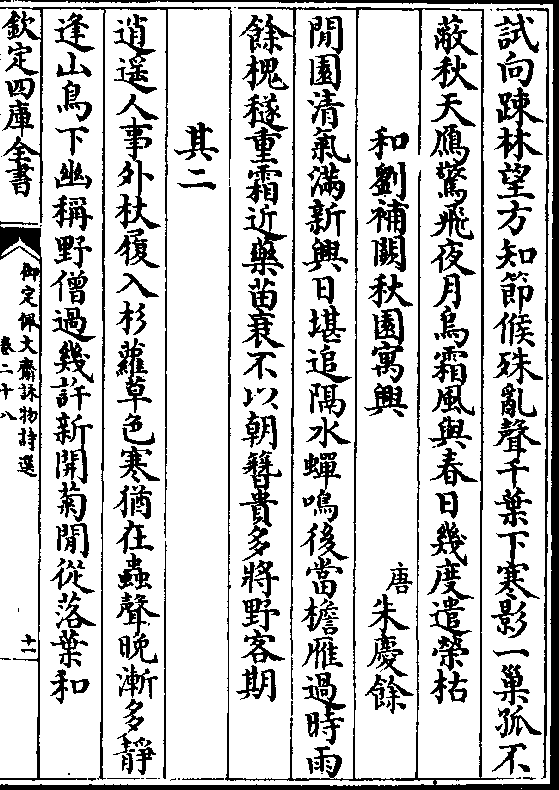 試向疎林望方知節候殊亂聲千葉下寒影一巢孤不
蔽秋天鴈驚飛夜月烏霜風與春日幾度遣榮枯
和劉補闕秋園寓興
唐朱慶餘
閒園清氣滿新興日堪追隔水蟬鳴後當檐雁過時雨
餘槐穟重霜近藥苗衰不以朝簪貴多將野客期
其二
逍遥人事外杖履入杉蘿草色寒猶在蟲聲晚漸多靜
逢山鳥下幽稱野僧過幾許新開菊閒從落葉和
欽定四庫全書
御定佩文齋詠物詩選
卷二十八
十一